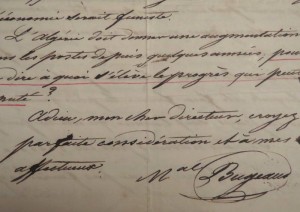 économie serait funeste.
L'Algérie doit donner une augmentation
les postes depuis quelques années, pour
dire à quoi s'élève le progrès que
?
Adieu, mon cher directeur, croyez
parfaite considération et à mes
affectueux
Mal Bugeaud